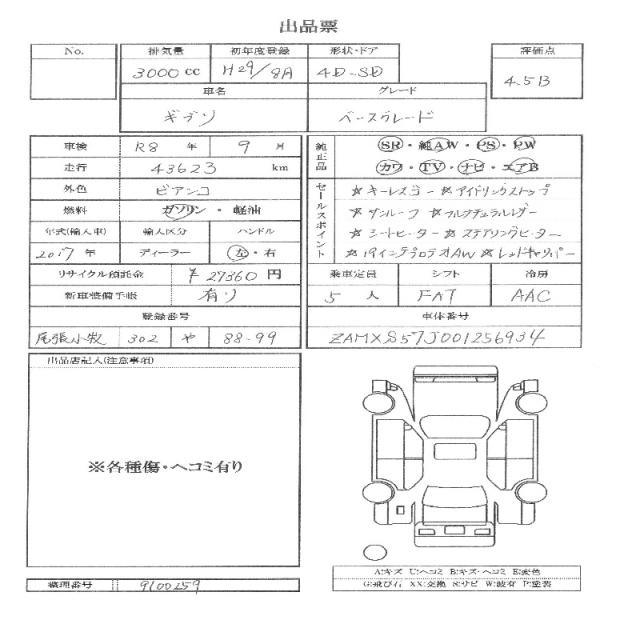 出品票
No. 排気量 初年度登録 形状・ドア 評価点
3000cc H29/8月 4D-SD 4.5B
車名 グレード
ギブリ ベースグレード
車検 R8 年 9 月
走行 43623 km
外色 ビアンコ
燃料 ガソリン・軽油
年式(輸入車) 輸入区分 ハンドル
2017年 ディーラー 左・右
リサイクル預託金 ¥27360 円
新車整備手帳 有り
登録番号
尾張小牧 302 や 88-99
純正品 SR・純AW・PS・PW
カワ・TV・ナビ・エアB
セールスポイント
☆キーレスゴー ☆アイドリングストップ
☆サンルーフ ☆フルナチュラルレザー
☆シートヒーター ☆ステアリングヒーター
☆19インチプロテオAW ☆レッドキャリパー
乗車定員 シフト 冷房
5 人 FAT AAC
車体番号
ZAMXS57J001256934
出品店記入(注意事項)
※各種傷・ヘコミ有り
A:キズ U:ヘコミ B:キズ・ヘコミ E:変色
G:飛び石 XX:交換 S:サビ W:波有 P:塗装
管理番号 9100259